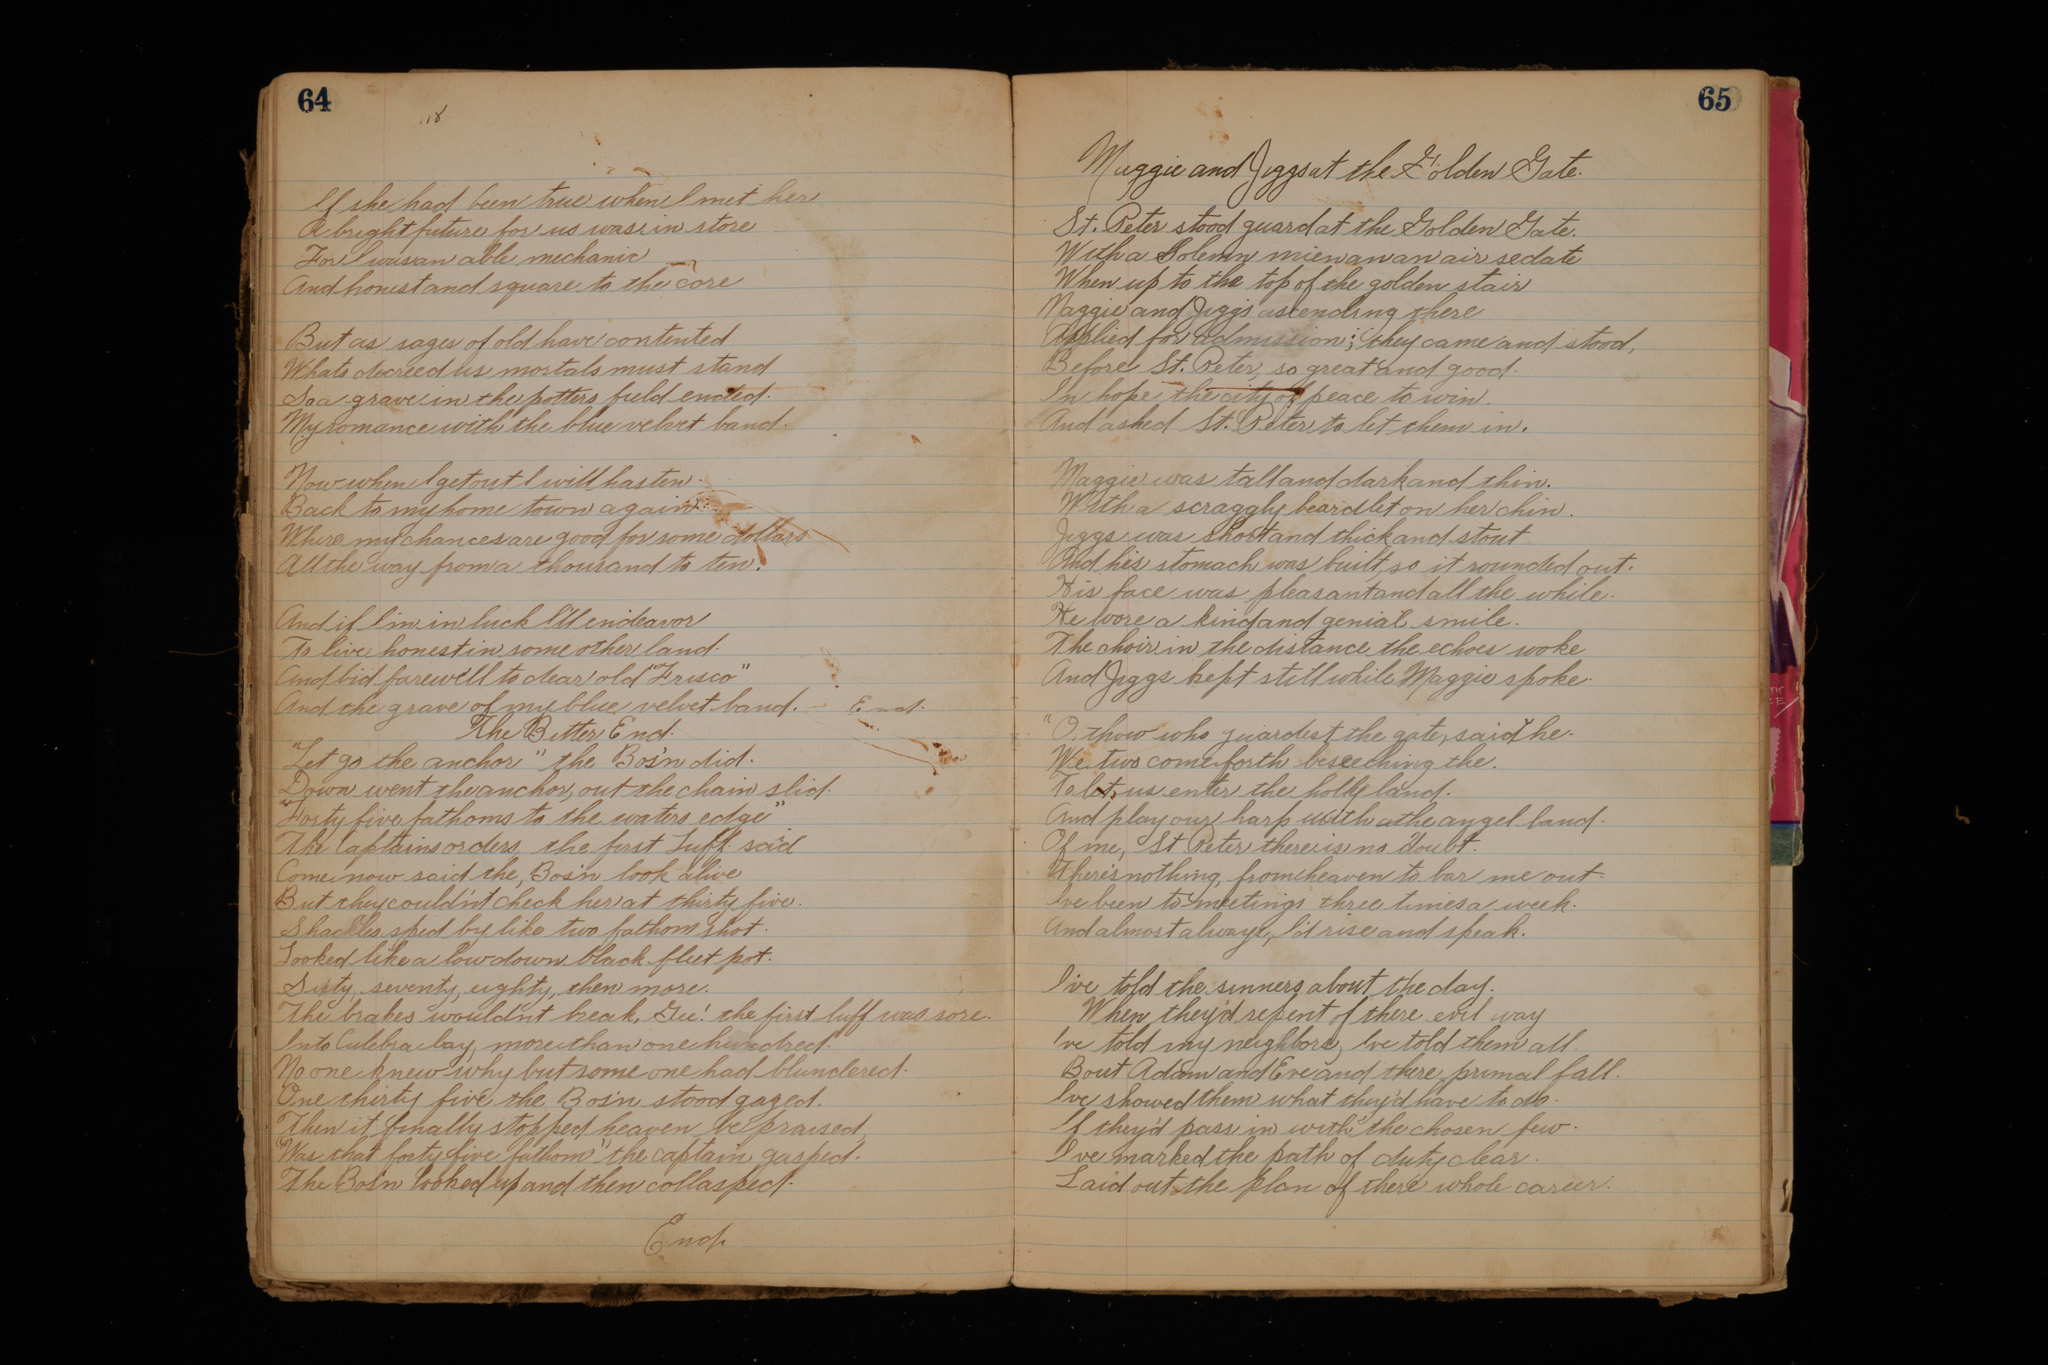 64
18
If she had been true when I met her
A bright future for us was in store
For I was an able mechanic
And honest and square to the core
But as sages of old have contented
Whats decreed us mortals must stand
So a grave in the potters field ended.
My romance with the blue velvet band.
Now when I get out I will hasten.
Back to my home town again
Where my chances are good for some dollars
All the way from a thousand to ten.
And if I'm in luck I'll endeavor
To live honest in some other land.
And bid farewell to dear old "Frisco"
And the grave of my blue velvet band. End.
The Bitter End.
"Let go the anchor" the Bos'n did.
Down went the anchor, out the chain slid.
"Forty five fathoms to the waters edge"
The Captains orders, the first Luff. said
Come now said the, Bos'n look alive
But they couldn't check her at thirty five.
Shackles sped by like two fathom shot.
Looked like a low down black fleet pot.
Sixty, seventy, eighty, then more.
The brakes wouldn't break, Gee! the first luff was sore.
Into Culebra bay, more than one hundred.
No one knew why but some one had blundered.
One thirty five the Bos'n stood gazed.
Then it finally stopped heaven be praised,
"Was that forty five fathom" the captain gasped.
The Bos'n looked up and then collasped.
End.
65
Maggie and Jiggs at the Golden Gate.
St. Peter stood guard at the Golden Gate.
With a Solemn mien an an air sedate
When up to the top of the golden stair
Maggie and Jiggs ascending there
Applied for admission; they came and stood,
Before St. Peter, so great and good.
In hope the city of peace to win.
And asked St. Peter to let them in.
Maggie was tall and dark and thin.
With a scraggly beardlet on her chin.
Jiggs was short and thick and stout
And his stomach was built so it rounded out.
His face was pleasant and all the while.
He wore a kind and genial smile.
The choir in the distance the echoes woke
And Jiggs kept still while Maggie spoke.
"O, thow who guardest the gate, said he.
We two come forth beseeching the.
To let, us enter the holly land.
And play our harp with the angel band.
Of me, St Peter there is no doubt.
There's nothing, from heaven to bar me out.
I've been to meetings three times a week.
And almost always, I'd rise and speak.
I've told the sinners about the day.
When they'd repent of there evil way
I've told my neighbors, I've told them all
Bout Adam and Eve and there primal fall.
I've showed them what they'd have to do.
If they'd pass in with the chosen few.
I've marked the path of duty clear.
Laid out the plan of there whole career.